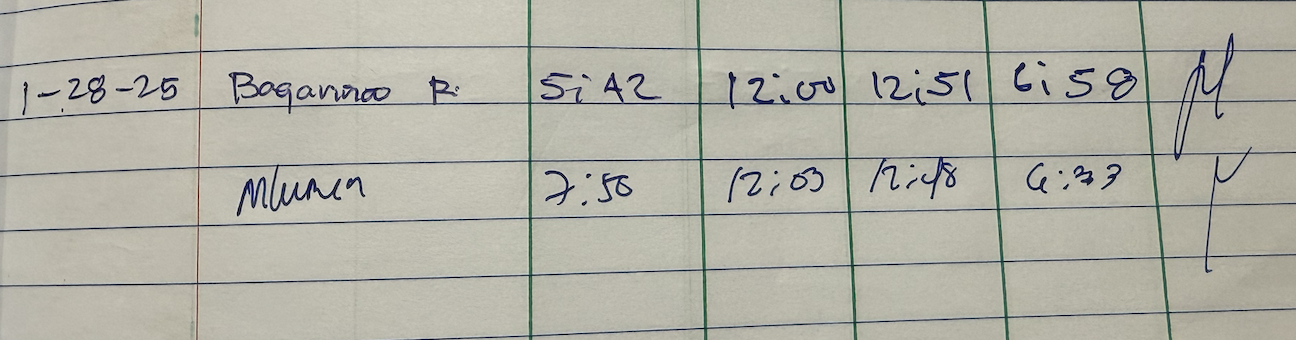 1-28-25 Bagarinao R. 5:42 12:00 12:51 6:58
7:50 12:03 12:48 6:33